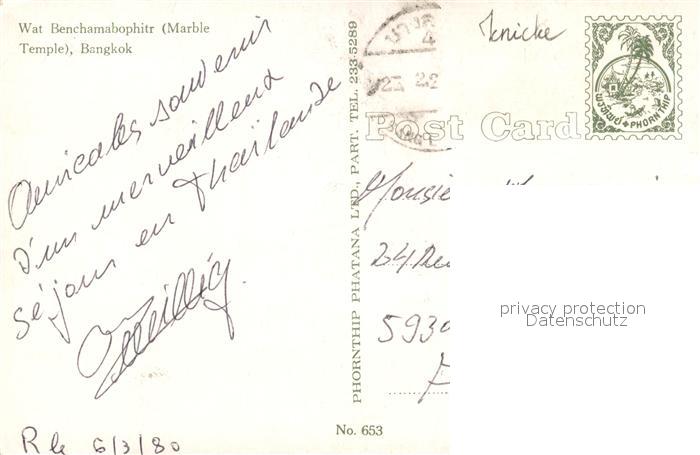 Wat Benchamabophitr (Marble
Temple), Bangkok
Amicales souvenirs
d'un merveilleux
séjour en Thaïlande
R le 6/3/80
PHORNTHIP PHATANA LTD., PART. TEL. 233-5289
No. 653
knicke
พรทิพย์ PHORNTHIP
Post Card
Monsie
24 Ru
5930
privacy protection
Datenschutz